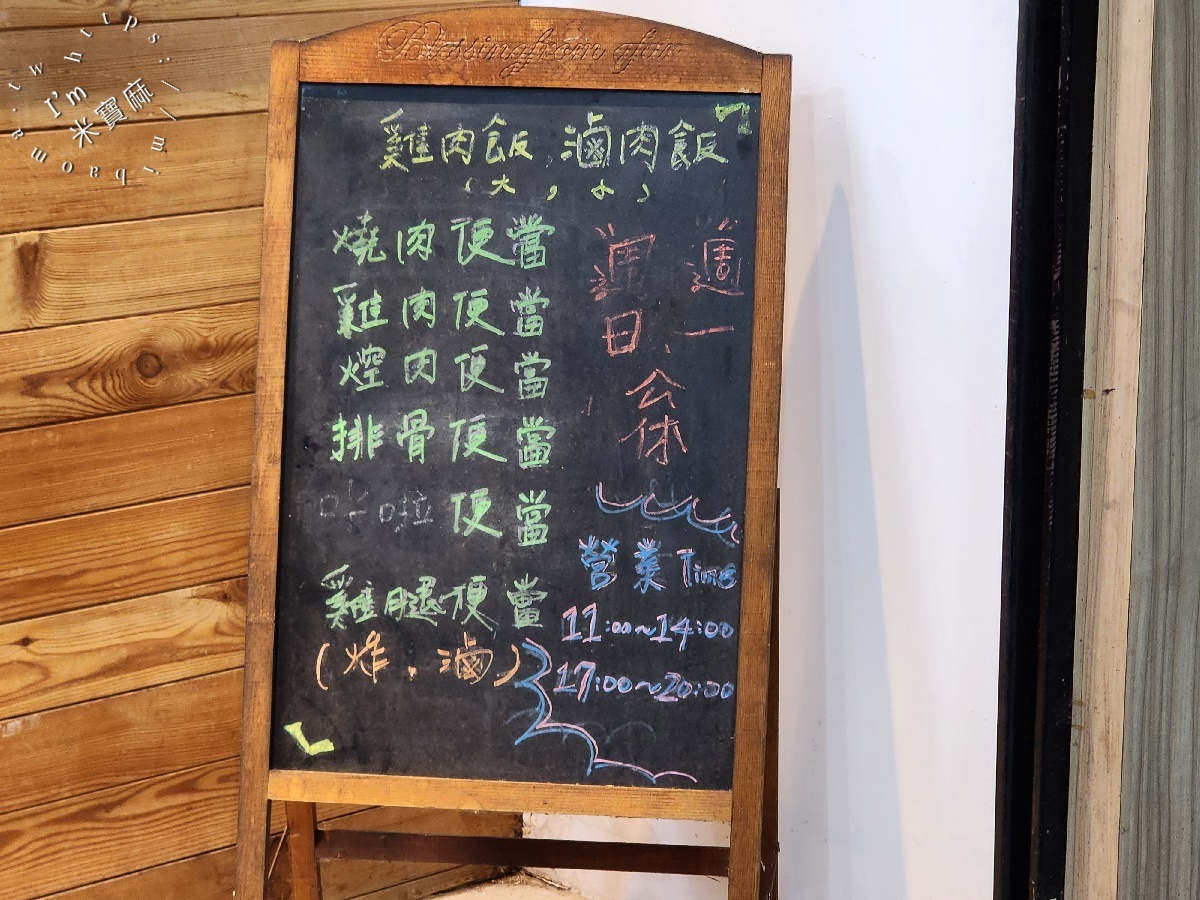 Blessing from afar
雞肉飯,滷肉飯
(大,小)
燒肉便當
雞肉便當
焢肉便當
排骨便當
咔啦便當
雞腿便當
(炸,滷)
週一
週日、
公休
營業Time
11:00~14:00
17:00~20:00
I'm
米寶麻